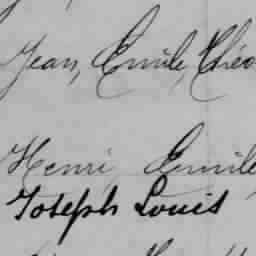 Jean, Emile, Théo
Henri, Emile
Joseph Louis